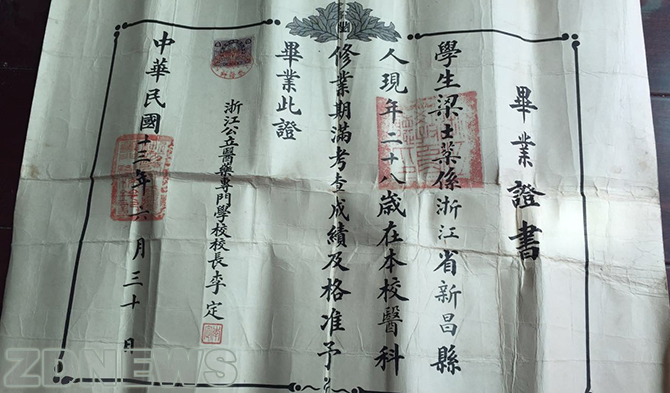 畢業證書
學生梁士棻係浙江省新昌縣
人現年二十八歲在本校醫科
修業期滿考查成績及格准予
畢業此證
浙江公立醫藥專門學校校長李定
中華民國十三年六月三十日
ZDNEWS